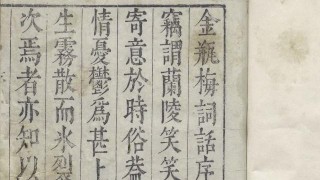 金瓶梅詞話序
竊謂蘭陵笑笑
寄意於時俗蓋
情憂鬱爲甚上
生霧散而氷裂
次焉者亦知以